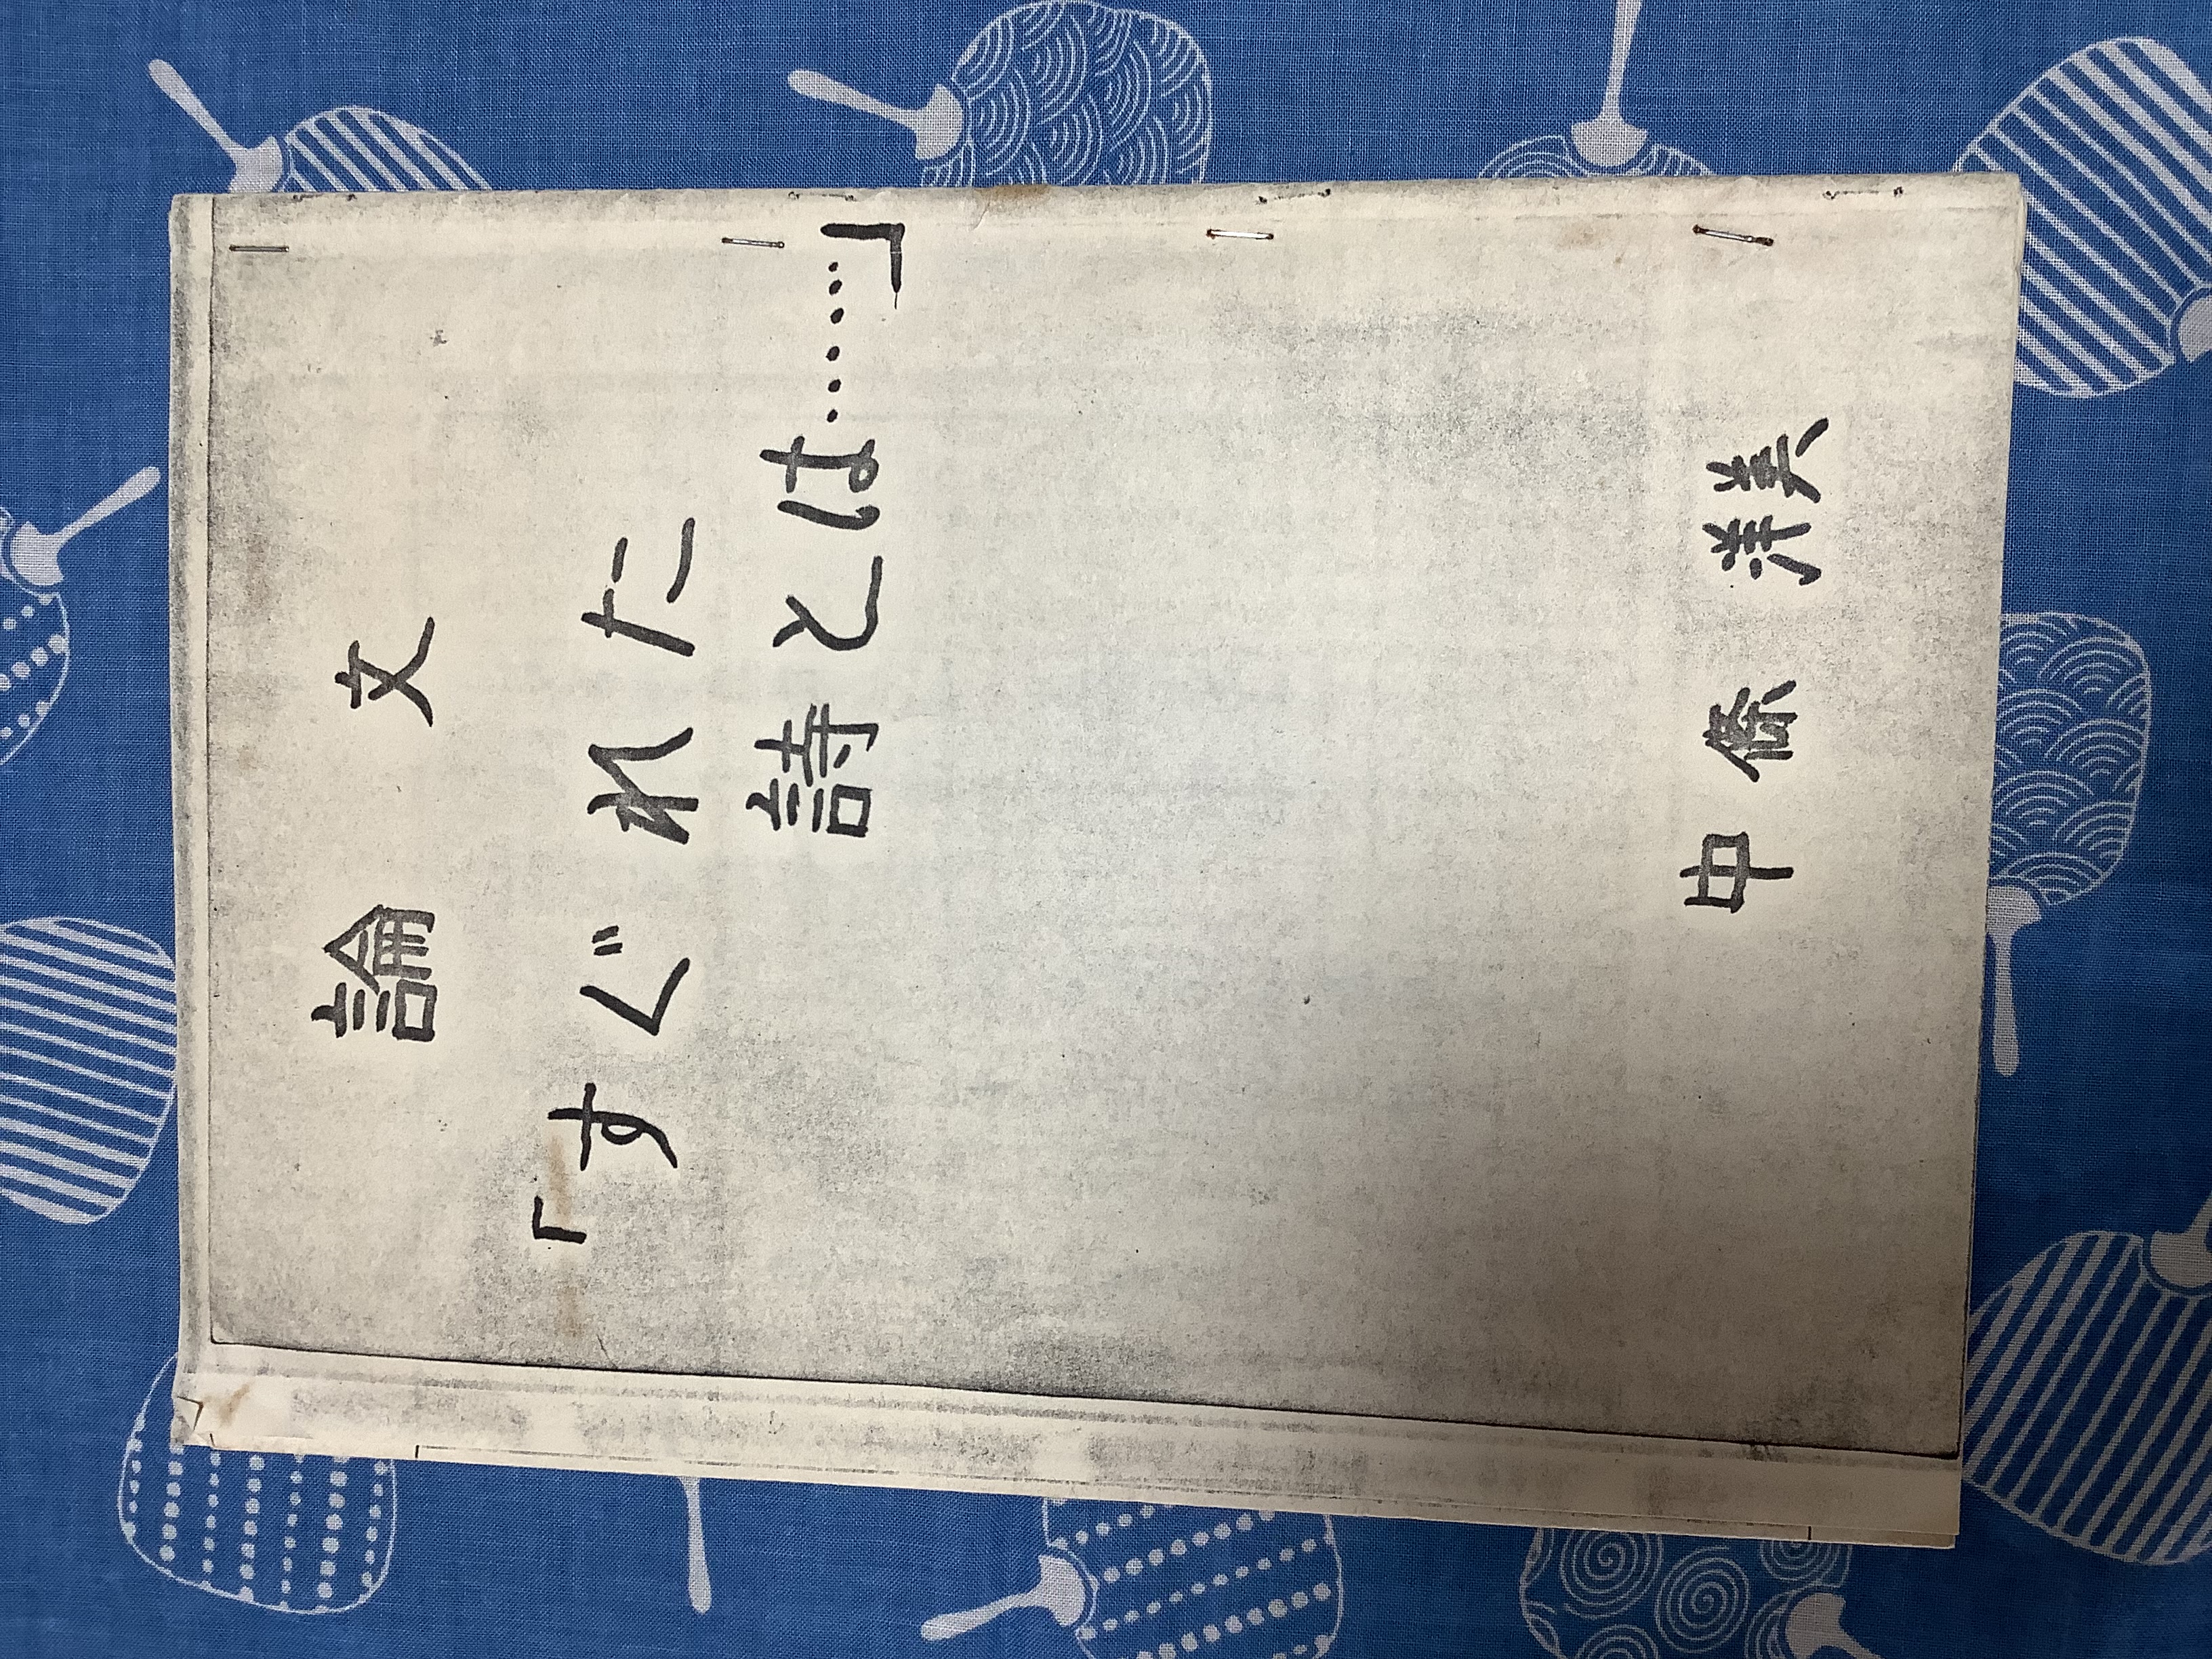 論文
「すぐれた
詩とは……」
中條洋美